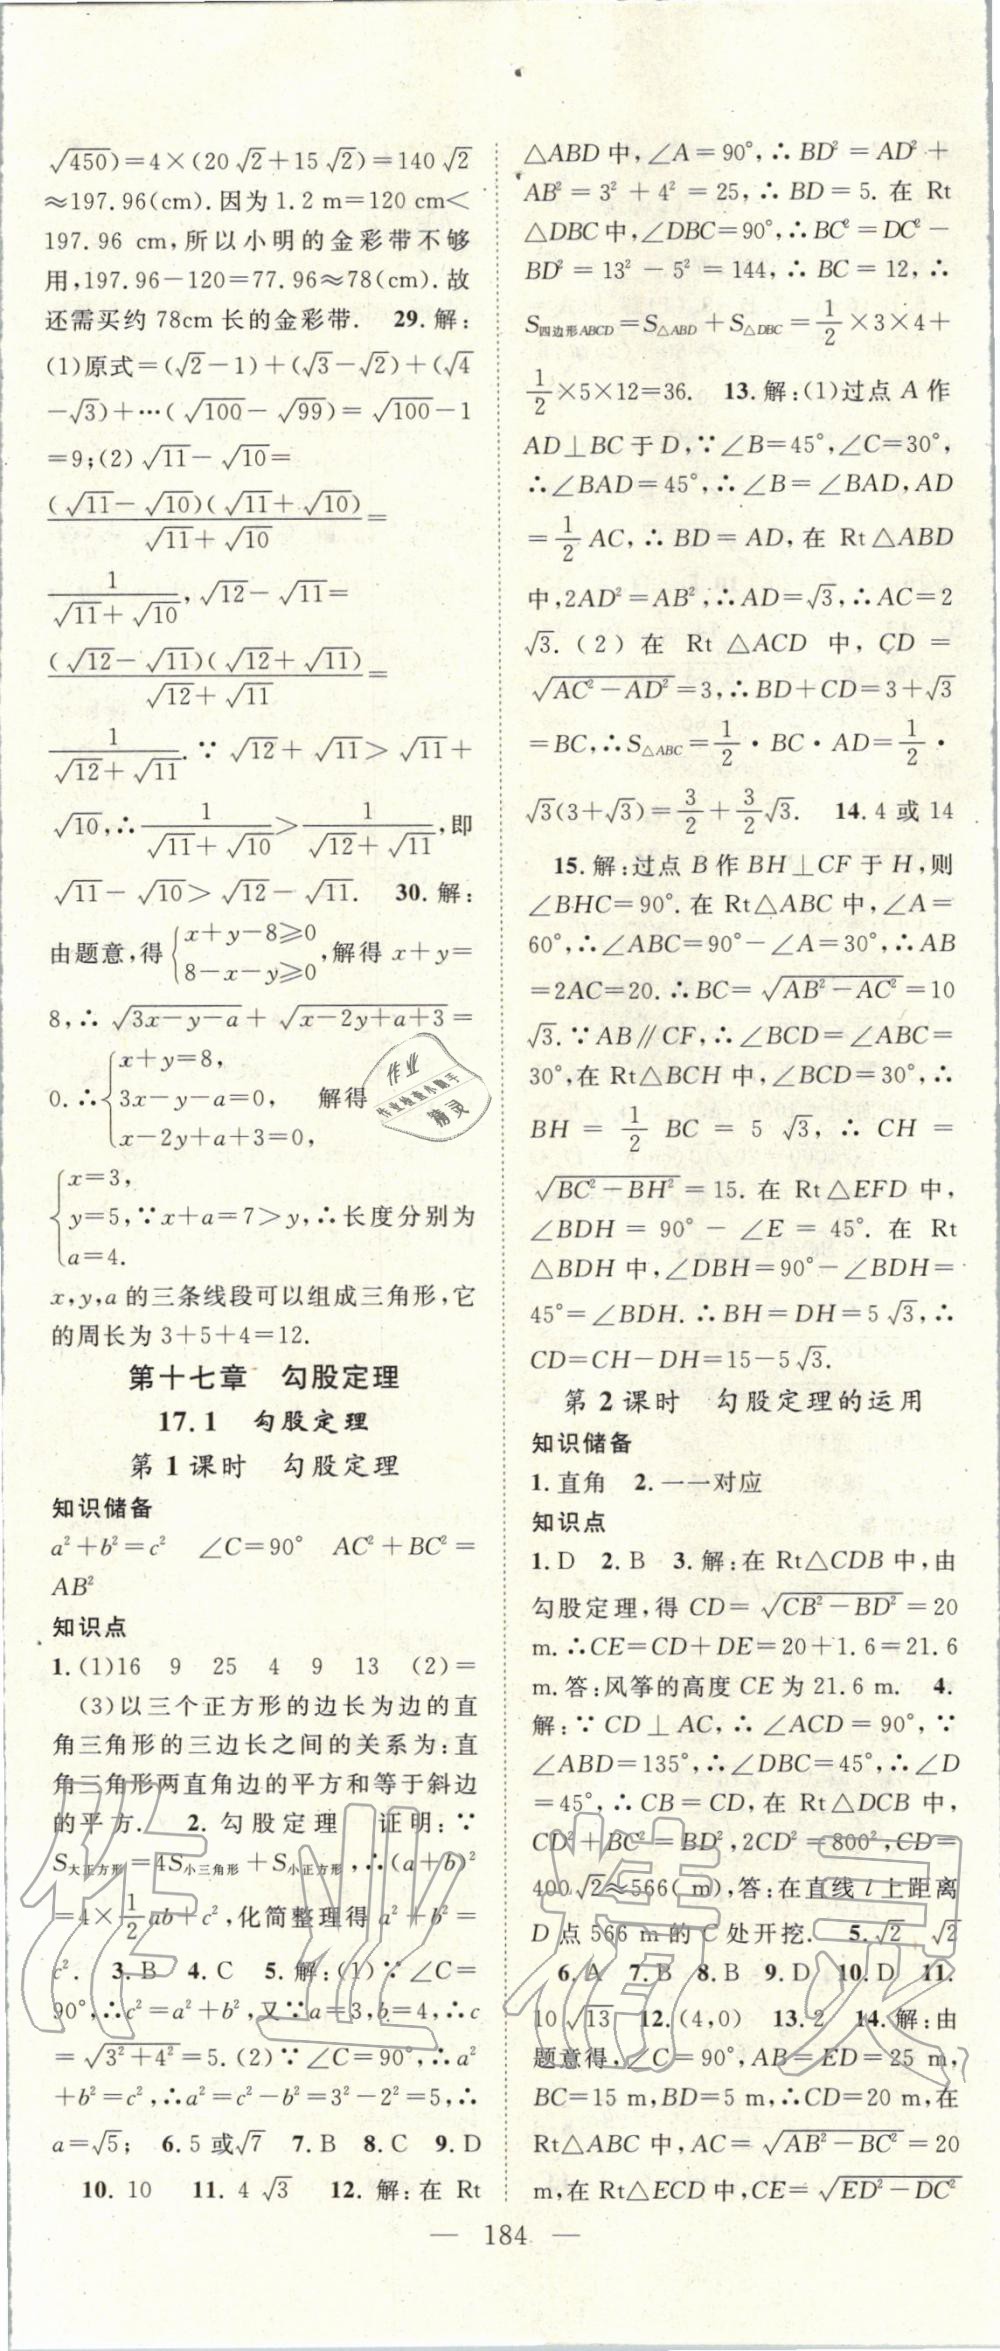 √450)=4×(20√2+15√2)=140√2
≈197.96(cm).因为1.2 m=120 cm<
197.96 cm,所以小明的金彩带不够
用,197.96-120=77.96≈78(cm).故
还需买约78cm长的金彩带. 29.解:
(1)原式=(√2-1)+(√3-√2)+(√4
-√3)+…(√100-√99)=√100-1
=9;(2)√11-√10=
(√11-√10)(√11+√10)/(√11+√10)=
1/(√11+√10),√12-√11=
(√12-√11)(√12+√11)/(√12+√11)=
1/(√12+√11).∵√12+√11>√11+
√10,∴1/(√11+√10)>1/(√12+√11),即
√11-√10>√12-√11. 30.解:
由题意,得{x+y-8≥0
8-x-y≥0,解得x+y=
8,∴√(3x-y-a)+√(x-2y+a+3)=
0.∴{x+y=8,
3x-y-a=0, 解得
x-2y+a+3=0,
{x=3,
y=5,∵x+a=7>y,∴长度分别为
a=4.
x,y,a的三条线段可以组成三角形,它
的周长为3+5+4=12.
第十七章 勾股定理
17.1 勾股定理
第1课时 勾股定理
知识储备
a²+b²=c² ∠C=90° AC²+BC²=
AB²
知识点
1.(1)16 9 25 4 9 13 (2)=
(3)以三个正方形的边长为边的直
角三角形的三边长之间的关系为:直
角三角形两直角边的平方和等于斜边
的平方. 2.勾股定理 证明:∵
S大正方形=4S小三角形+S小正方形,∴(a+b)²
=4×1/2ab+c²,化简整理得a²+b²=
c². 3.B 4.C 5.解:(1)∵∠C=
90°,∴c²=a²+b²,又∵a=3,b=4,∴c
=√(3²+4²)=5.(2)∵∠C=90°,∴a²
+b²=c²,∴a²=c²-b²=3²-2²=5,∴
a=√5; 6.5或√7 7.B 8.C 9.D
10.10 11.4√3 12.解:在Rt
△ABD中,∠A=90°,∴BD²=AD²+
AB²=3²+4²=25,∴BD=5.在Rt
△DBC中,∠DBC=90°,∴BC²=DC²-
BD²=13²-5²=144,∴BC=12,∴
S四边形ABCD=S△ABD+S△DBC=1/2×3×4+
1/2×5×12=36. 13.解:(1)过点A作
AD⊥BC于D,∵∠B=45°,∠C=30°,
∴∠BAD=45°,∴∠B=∠BAD,AD
=1/2AC,∴BD=AD,在Rt△ABD
中,2AD²=AB²,∴AD=√3,∴AC=2
√3.(2)在Rt△ACD中,CD=
√(AC²-AD²)=3,∴BD+CD=3+√3
=BC,∴S△ABC=1/2·BC·AD=1/2·
√3(3+√3)=3/2+3/2√3. 14.4或14
15.解:过点B作BH⊥CF于H,则
∠BHC=90°.在Rt△ABC中,∠A=
60°,∴∠ABC=90°-∠A=30°,∴AB
=2AC=20.∴BC=√(AB²-AC²)=10
√3.∵AB∥CF,∴∠BCD=∠ABC=
30°,在Rt△BCH中,∠BCD=30°,∴
BH=1/2BC=5√3,∴CH=
√(BC²-BH²)=15.在Rt△EFD中,
∠BDH=90°-∠E=45°.在Rt
△BDH中,∠DBH=90°-∠BDH=
45°=∠BDH.∴BH=DH=5√3,∴
CD=CH-DH=15-5√3.
第2课时 勾股定理的运用
知识储备
1.直角 2.一一对应
知识点
1.D 2.B 3.解:在Rt△CDB中,由
勾股定理,得CD=√(CB²-BD²)=20
m.∴CE=CD+DE=20+1.6=21.6
m.答:风筝的高度CE为21.6 m. 4.
解:∵CD⊥AC,∴∠ACD=90°,∵
∠ABD=135°,∴∠DBC=45°,∴∠D
=45°,∴CB=CD,在Rt△DCB中,
CD²+BC²=BD²,2CD²=800²,CD=
400√2≈566(m),答:在直线l上距离
D点566 m的C处开挖. 5.√2 √2
6.A 7.B 8.B 9.D 10.D 11.
10√13 12.(4,0) 13.2 14.解:由
题意得,∠C=90°,AB=ED=25 m,
BC=15 m,BD=5 m,∴CD=20 m,在
Rt△ABC中,AC=√(AB²-BC²)=20
m,在Rt△ECD中,CE=√(ED²-DC²)
— 184 —
作业
作业检查小助手
精灵